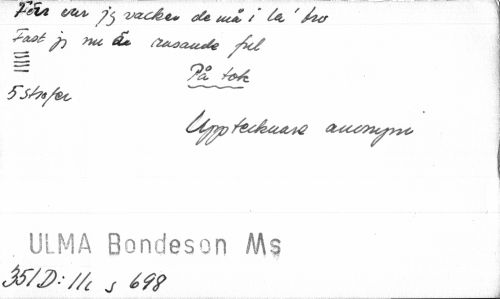 Förr var jg vacker de må i la' bro
Fast jg nu är rasande ful
På tok
5 strofer
Upptecknare anonym
ULMA Bondeson Ms
351 D: s 698